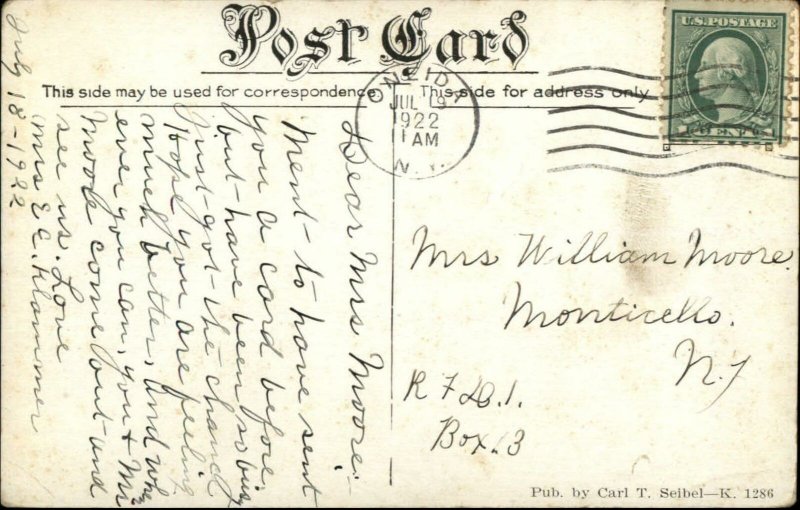 Post Card
This side may be used for correspondence
This side for address only
U.S. POSTAGE
ONEIDA
JUL 19
1922
1 AM
N.Y.
Dear Mrs Moore:-
Ment- to have sent
you a card before,
but- have been so busy
Just- got- the chance
Hope you are feeling
much better, and when
ever you can, you & Mr
Moore come out- and
see us. Love
Mrs E C. Klammer
July 18-1922
Mrs William Moore.
Monticello.
N.Y
R F D. 1.
Box. 3
Pub. by Carl T. Seibel—K. 1286